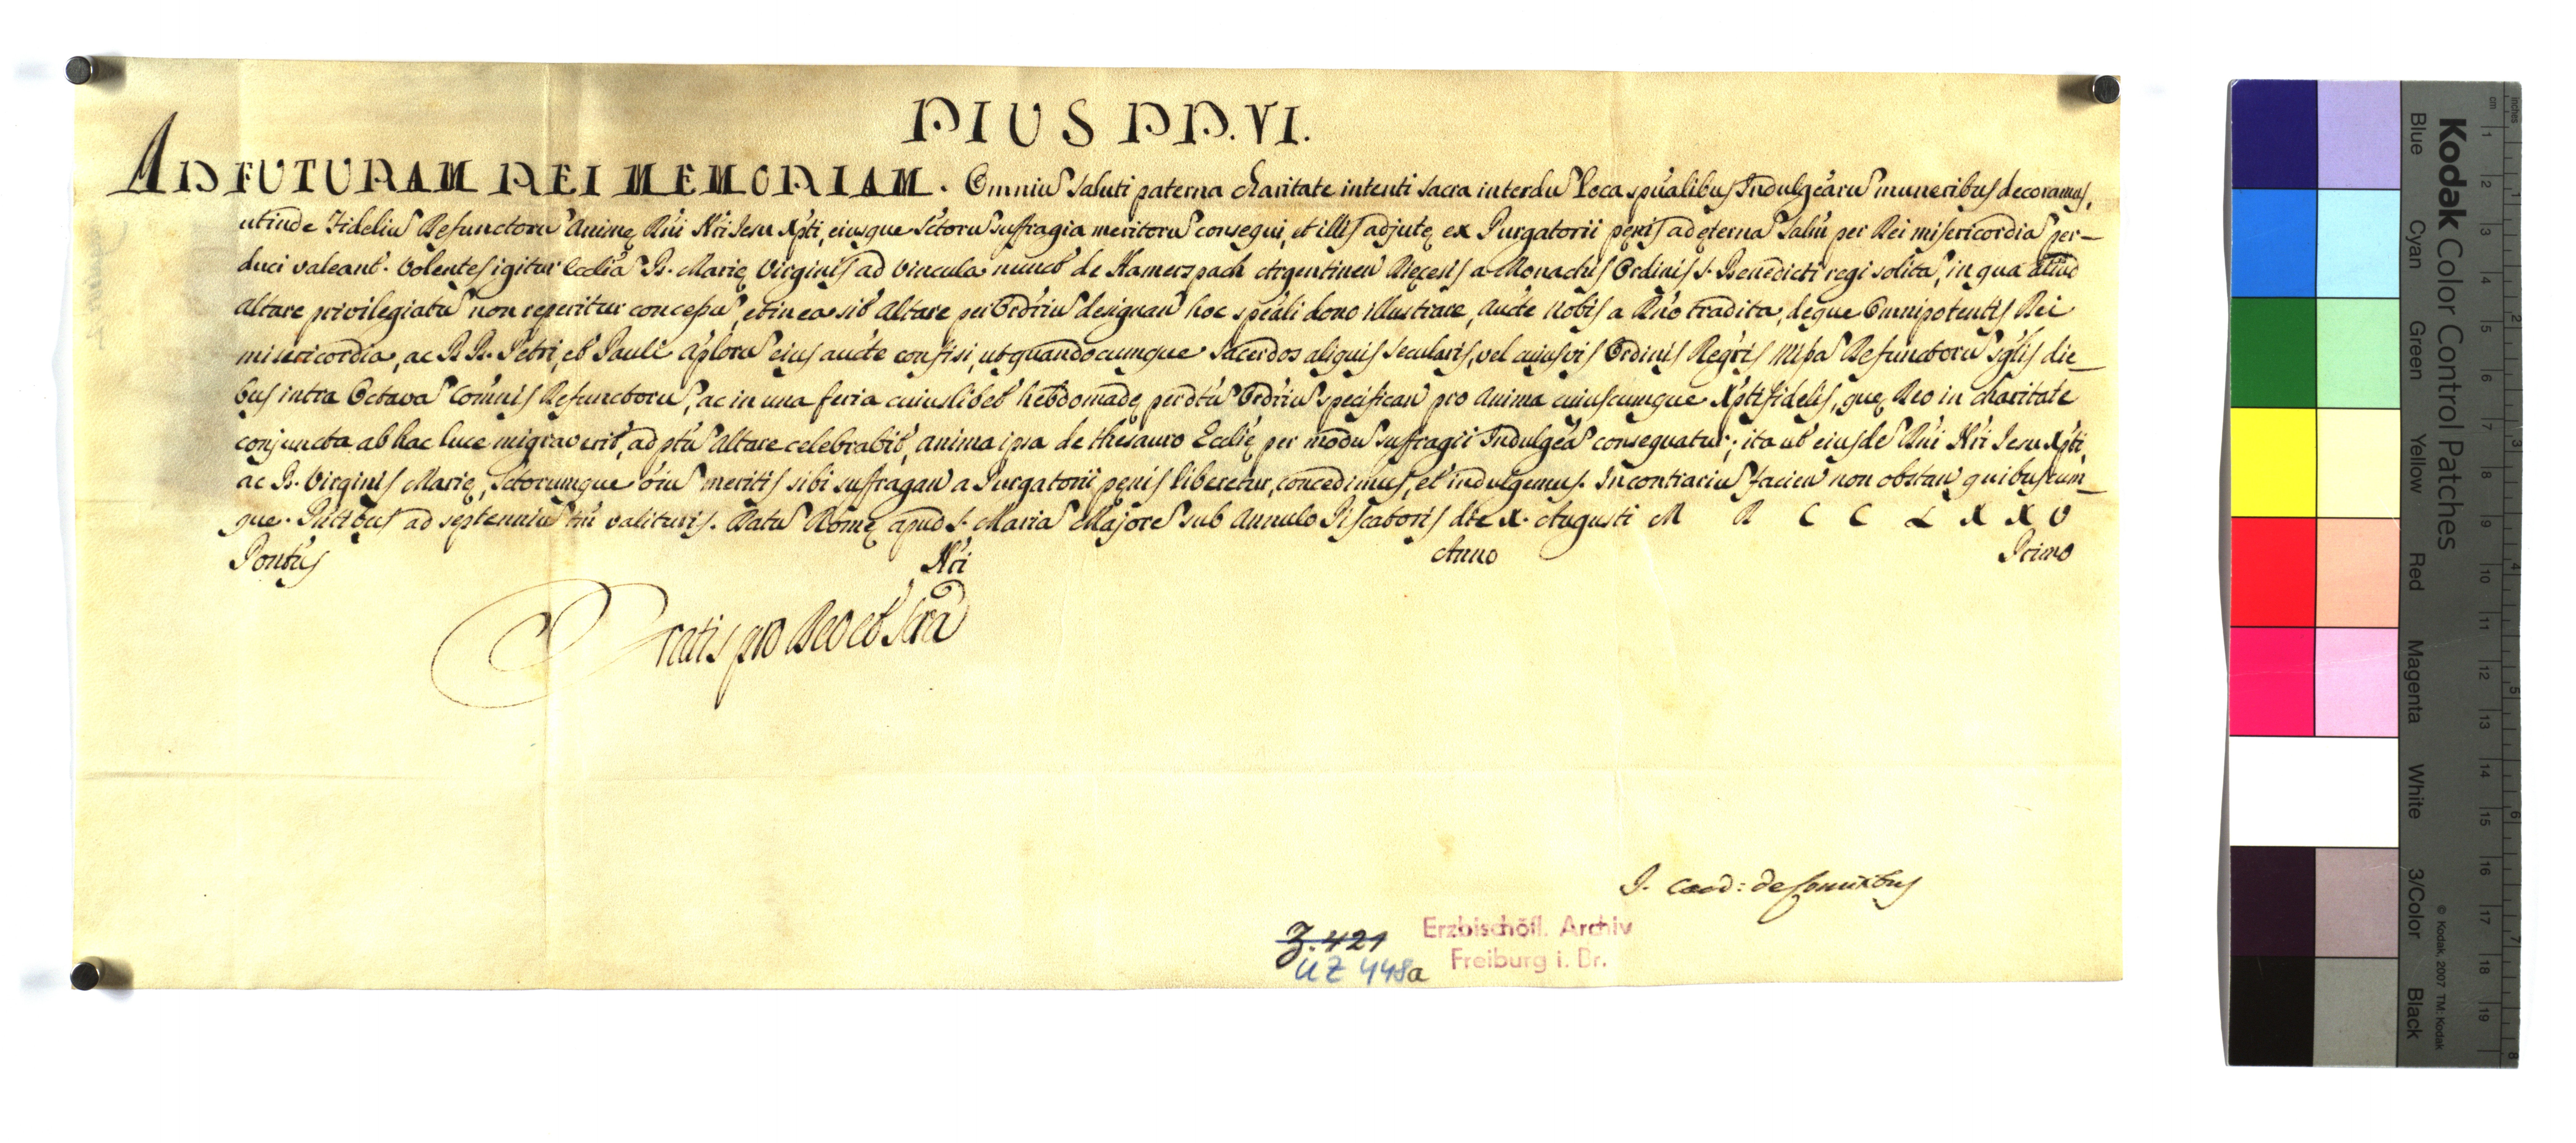 PIUS PP. VI.
AD FUTURAM REI MEMORIAM. Omniu Saluti paterna charitate intenti sacra interdu Loca sp̃ualibus Indulg̃earu muneribus decoramus,
ut inde Fidelium Defunctoru Animę Dñi Ñri Jesu Xp̃ti, eiusque S̃ctoru suffragia meritoru consequi, et illis adjutę ex Purgatorii pęnis ad ęterna Salũ per Dei misericordia per-
duci valeant. Volentes igitur Eccl̃ia B. Marię Virginis ad Vincula nuncẽ de Hamerzpach Argentinen Dięcesis a Monachis Ordinis S. Benedicti regi solita, in qua aliud
Altare privilegiatu non reperitur concessu, et in ea sit Altare per Ord̃riu designan hoc sp̃eali dono illustrare, auc̃te Nobis a Dño tradita, deque Omnipotentis Dei
misericordia, ac BB. Petri, et Pauli Ap̃loru eius auc̃te confisi, ut quandocumque Sacerdos aliquis Secularis, vel cuiusvis Ordinis Reg̃ris Missa Defunctoru sg̃lis die-
bus intra Octava Com̃nis Defunctoru, ac in una feria cuiuslibet hebdomadę per dtũ Ord̃riu specifican pro Anima cuiuscumque Xp̃tifidelis, quę Deo in charitate
conjuncta ab hac luce migraverit, ad p̃tu Altare celebrabit, anima ipsa de thesauro Ecclię per modu suffragii Indulg̃ea consequatur; ita ut eiusde Dñi Ñri Jesu Xp̃ti,
ac B. Virginis Marię, S̃ctorumque õiu meritis sibi suffragan a Purgatorii pęnis liberetur, concedimus, et indulgemus. In contrariu facien non obstan quibuscum-
que. P̃ntibus ad septenniu tñ valituris. Datu Romę apud S. Maria Majore sub Annulo Piscatoris die X. Augusti M D C C L X X V
Pont̃us Ñri Anno Primo
Gratis pro Deo et Scrã
J. Card: de Comitibus
Z. 421
UZ 448a
Erzbischöfl. Archiv
Freiburg i. Br.
Kodak Color Control Patches
Blue Cyan Green Yellow Red Magenta White 3/Color Black
© Kodak, 2007 TM: Kodak
inches 1 2 3 4 5 6 7 8
cm 1 2 3 4 5 6 7 8 9 10 11 12 13 14 15 16 17 18 19